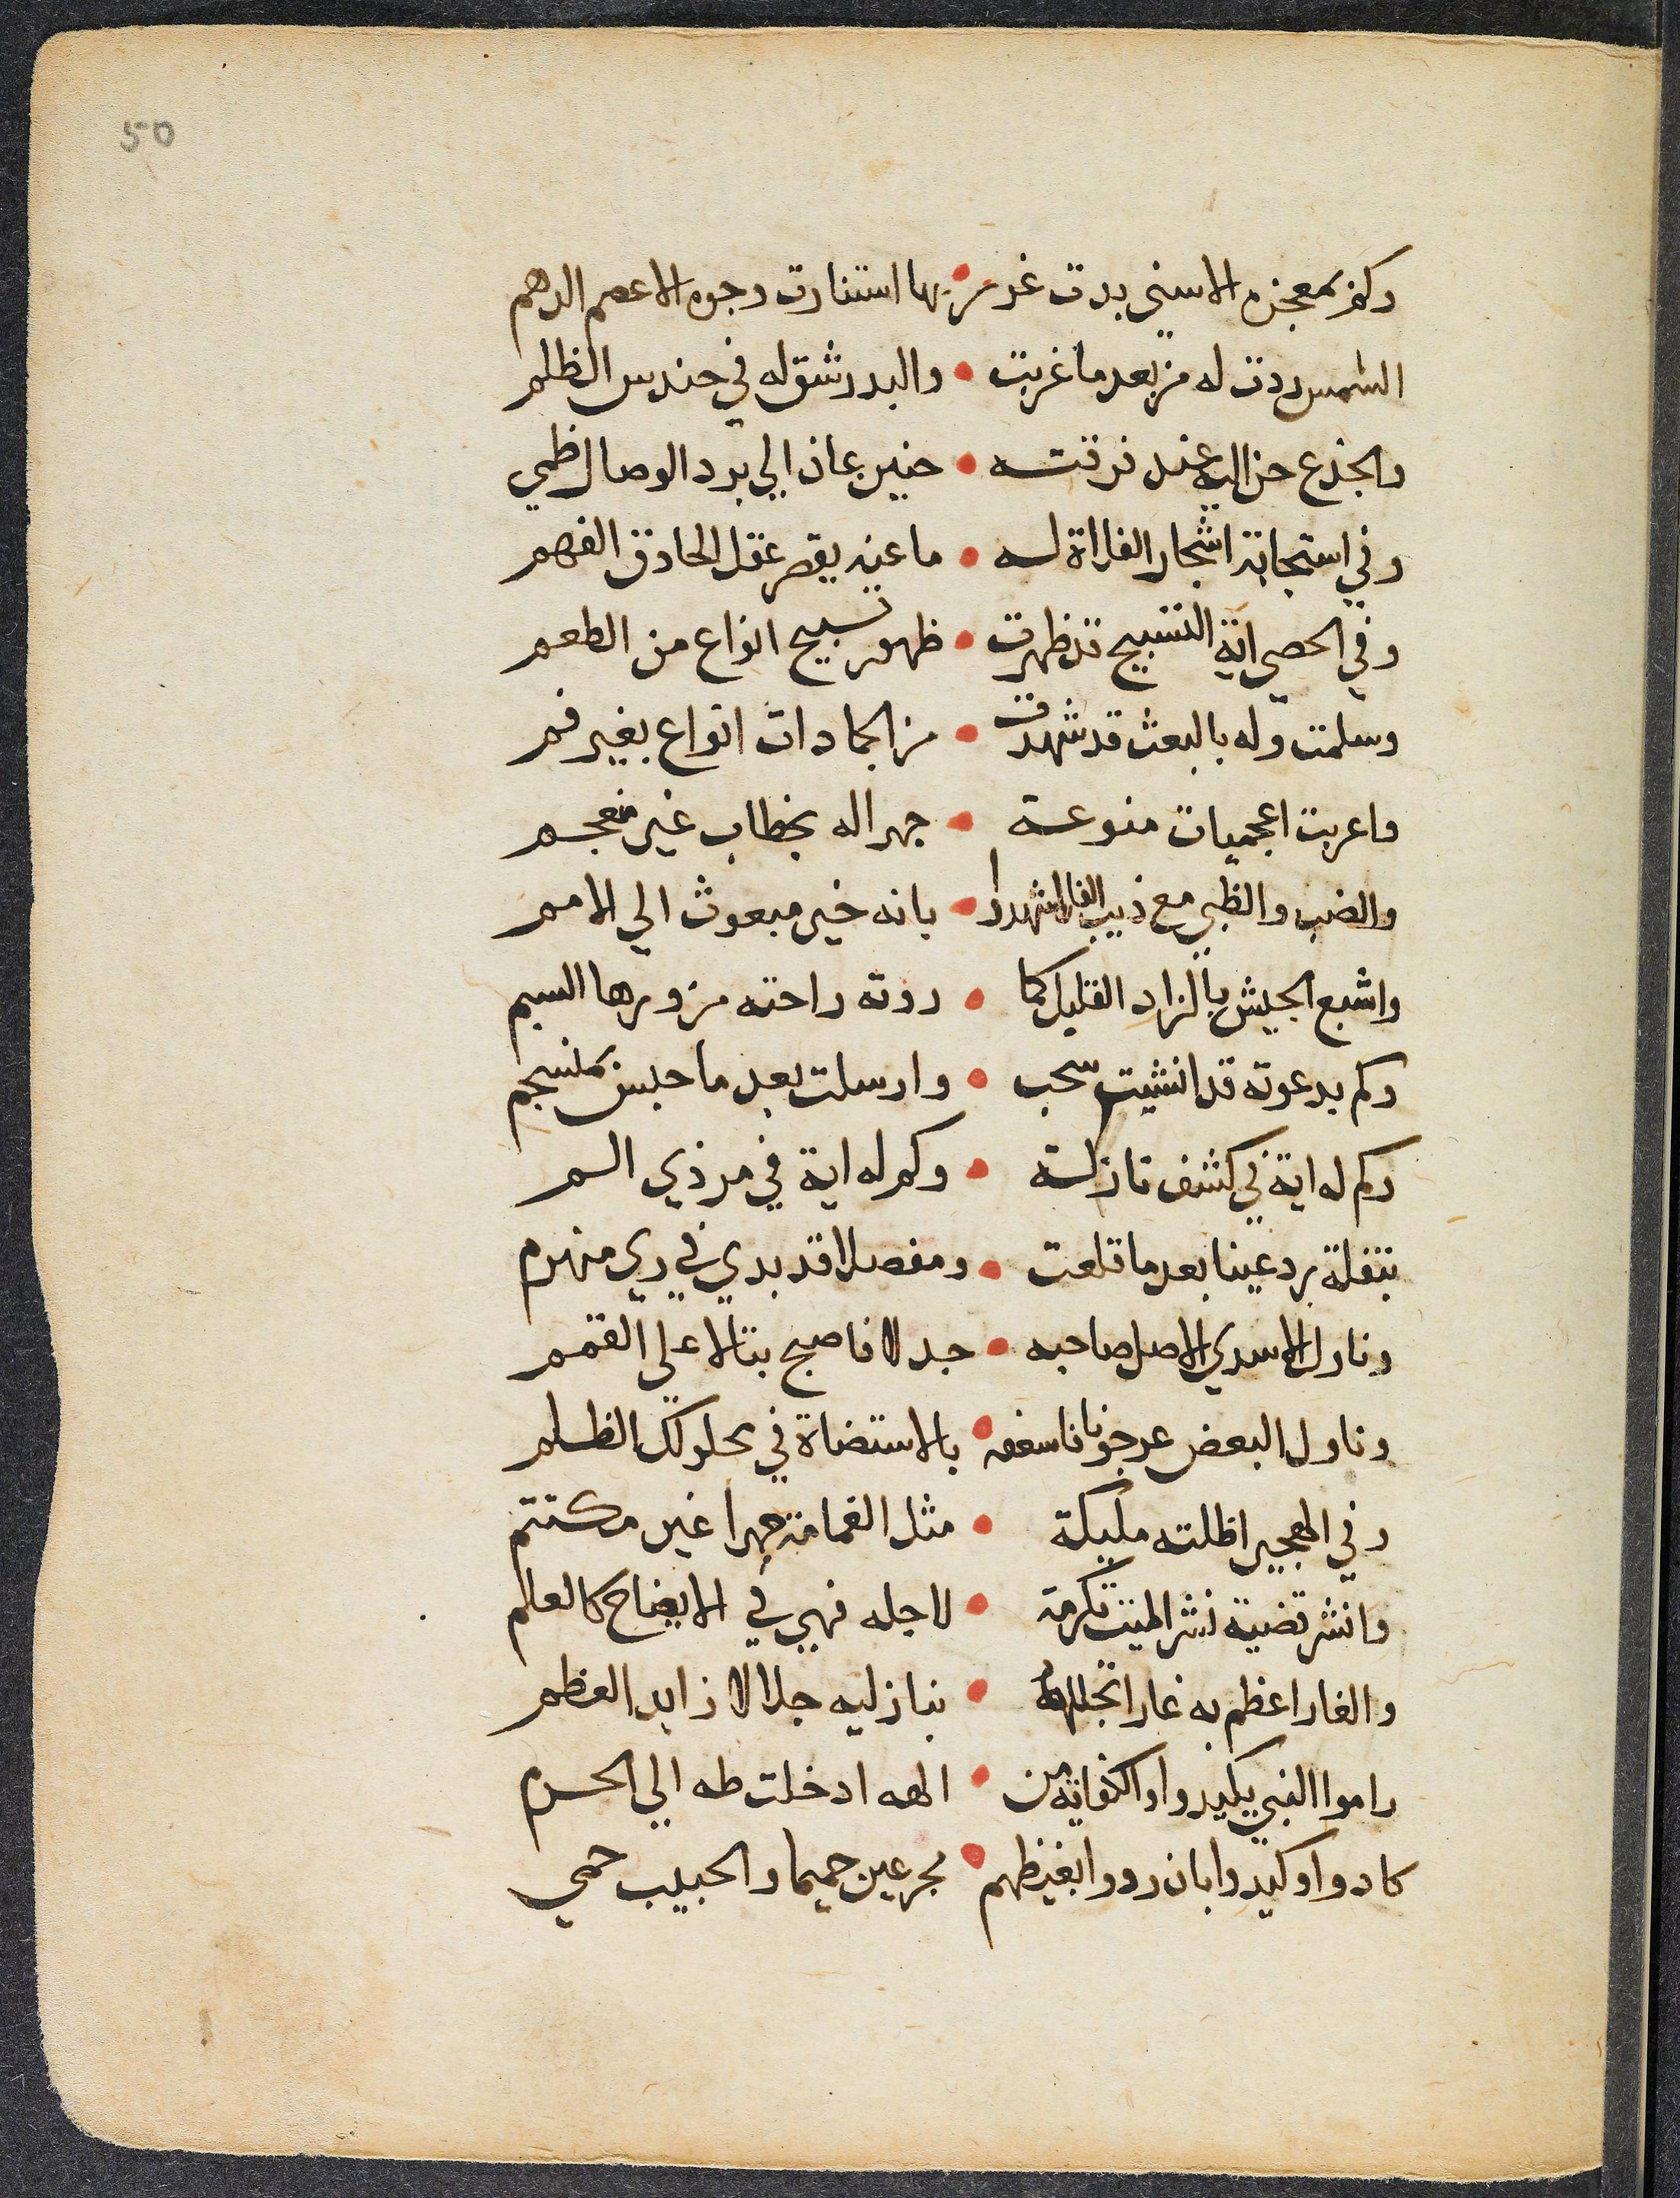 50
وكم بمعجزه الاسني بدت غرر • بها استنارت وجوه الاعصر الدهم
الشمس ردت له من بعد ما غربت • والبدر شق له في حندس الظلم
والجذع حن اليه عند فرقته • حنين عان الي برد الوصال ظمي
وفي استجابة اشجار الفلاة له • ما عنه يقصر عقل الحاذق الفهم
وفي الحصي اية التسبيح قد ظهرت • ظهور تسبيح انواع من الطعم
وسلمت وله بالبعث قد شهدت • من الجمادات انواع بغير فم
واعربت اعجميات منوعة • جهرا له بخطاب غير منعجم
والضب والظبي مع ذيب الفلا شهدوا • بانه خير مبعوث الي الامم
واشبع الجيش بالزاد القليل كما • روته راحته من وردها الشبم
وكم بدعوته قد انشيت سحب • وارسلت بعد ما حبس بمنسجم
وكم له اية في كشف نازلة • وكم له اية في مر ذي السم
بتفلة برد عينا بعد ما قلعت • ومفصلا قد بدي في زي منهزم
وناول الاسدي الاصل صاحبه • جدلا فاصبح بتالا علي القمم
وناول البعض عرجونا فاسعفه • بالاستضاة في محلولك الظلم
وفي الهجير اظلته مليكة • مثل الغمامة جهرا غير مكتتم
وانشر قضية نشر الميت تكرمة • لاجله فهي في الايضاح كالعلم
والغار اعظم به غارا تجلله • بنازليه جلالا زايد العظم
راموا النبي بكيد واد اكفاته من • الهه ادخلت طه الي الحرم
كادوا وكيدوا بان ردوا بغيظهم • مجرعين حميما والحبيب حمي